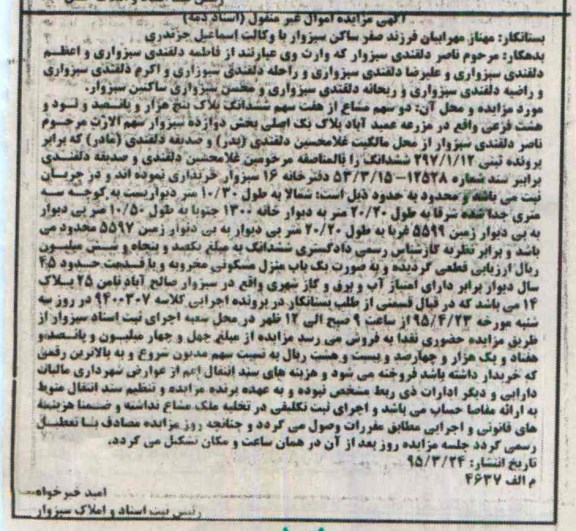 آگهی مزایده اموال غیر منقول (اسناد ذمه)
بستانکار: مهناز مهرابیان فرزند صفر ساکن سبزوار با وکالت اسماعیل جزندری
بدهکار: مرحوم ناصر دلقندی سبزوار که وارث وی عبارتند از فاطمه دلقندی سبزواری و اعظم
دلقندی سبزواری و علیرضا دلقندی سبزواری و راحله دلقندی سبزواری و اکرم دلقندی سبزواری
و راضیه دلقندی سبزواری و ریحانه دلقندی سبزواری و محسن سبزواری ساکنین سبزوار.
مورد مزایده و محل آن: دو سهم مشاع از هفت سهم ششدانگ پلاک پنج هزار و پانصد و نود و
هشت فرعی واقع در مزرعه عمید آباد پلاک یک اصلی بخش دوازده سبزوار سهم الارث مرحوم
ناصر دلقندی سبزوار از محل مالکیت غلامحسین دلقندی (پدر) و صدیقه دلقندی (مادر) که برابر
پرونده ثبتی ۲۹۷/۱/۱۲ ششدانگ را بالمناصفه مرحومین غلامحسین دلقندی و صدیقه دلقندی
برابر سند شماره ۱۲۵۲۸-۵۳/۳/۱۵ دفتر خانه ۱۶ سبزوار خریداری نموده اند و در جریان
ثبت می باشد و محدود به حدود ذیل است: شمالا به طول ۱۰/۳۰ متر دیواریست به کوچه سه
متری جدا شده شرقا به طول ۲۰/۲۰ متر به دیوار خانه ۱۳۰۰ جنوبا به طول ۱۰/۵۰ متر پی دیوار
به پی دیوار زمین ۵۵۹۹ غربا به طول ۲۰/۲۰ متر پی دیوار به پی دیوار زمین ۵۵۹۷ محدود می
باشد و برابر نظریه کارشناس رسمی دادگستری ششدانگ به مبلغ یکصد و پنجاه و شش میلیون
ریال ارزیابی قطعی گردیده و به صورت یک باب منزل مسکونی مخروبه و با قدمت حدود ۴۵
سال دیوار برابر دارای امتیاز آب و برق و گاز شهری واقع در سبزوار صالح آباد ثامن ۲۵ پلاک
۱۴ می باشد که در قبال قسمتی از طلب بستانکار در پرونده اجرایی کلاسه ۹۴۰۰۳۰۷ در روز سه
شنبه مورخه ۹۵/۴/۲۳ از ساعت ۹ صبح الی ۱۲ ظهر در محل شعبه اجرای ثبت اسناد سبزوار از
طریق مزایده حضوری نقدا به فروش می رسد مزایده از مبلغ چهل و چهار میلیون و پانصد و
هفتاد و یک هزار و چهارصد و بیست و هشت ریال به نسبت سهم مدیون شروع و به بالاترین رقمی
که خریدار داشته باشد فروخته می شود و هزینه های سند انتقال اعم از عوارض شهرداری مالیات
دارایی و دیگر ادارات ذی ربط مشخص نبوده و به عهده برنده مزایده و تنظیم سند انتقال منوط
به ارائه مفاصا حساب می باشد و اجرای ثبت تکلیفی در تخلیه ملک مشاع نداشته و ضمنا هزینه
های قانونی و اجرایی مطابق مقررات وصول می گردد و چنانچه روز مزایده مصادف با تعطیل
رسمی گردد جلسه مزایده روز بعد از آن در همان ساعت و مکان تشکیل می گردد.
تاریخ انتشار: ۹۵/۳/۲۴
م الف ۴۶۳۷
امید خبرخواه
رئیس ثبت اسناد و املاک سبزوار